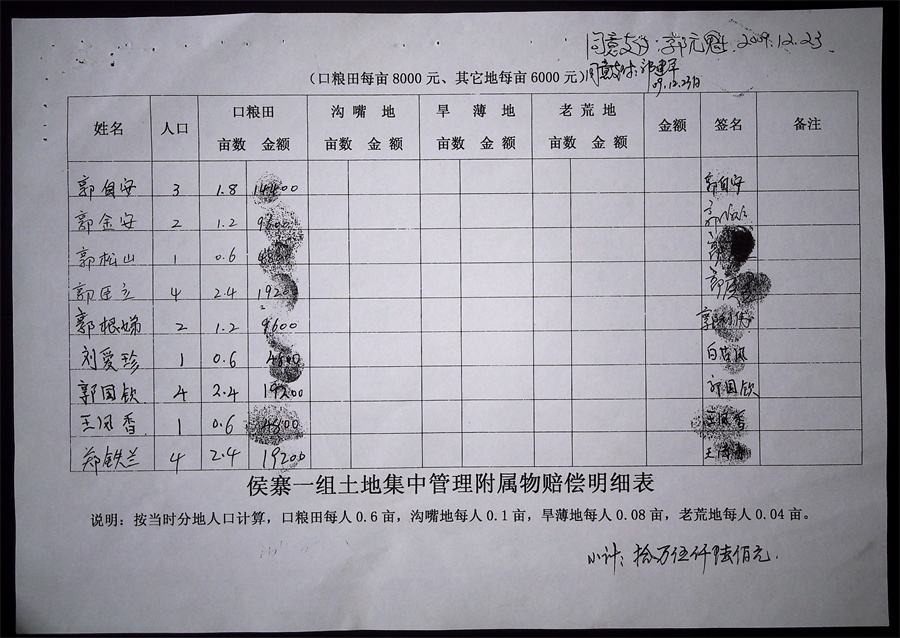 同意支付. 郭元魁. 2009.12.23
(口粮田每亩 8000 元、其它地每亩 6000 元) 同意支付. 
09.12.23日
姓名 人口 口粮田 沟嘴 地 旱 薄 地 老 荒 地 金额 签名 备注
亩数 金额 亩数 金 额 亩数 金 额 亩数 金 额
郭自安 3 1.8 14400 郭自安
郭金安 2 1.2 9600
郭松山 1 0.6 4800
郭 4 2.4 19200
郭根娣 2 1.2 9600
刘爱珍 1 0.6 4800
郭国钦 4 2.4 19200 郭国钦
王凤香 1 0.6 4800 王凤香
郑铁兰 4 2.4 19200
侯寨一组土地集中管理附属物赔偿明细表
说明：按当时分地人口计算，口粮田每人 0.6 亩，沟嘴地每人 0.1 亩，旱薄地每人 0.08 亩，老荒地每人 0.04 亩。
小计：拾万伍仟陆佰元.